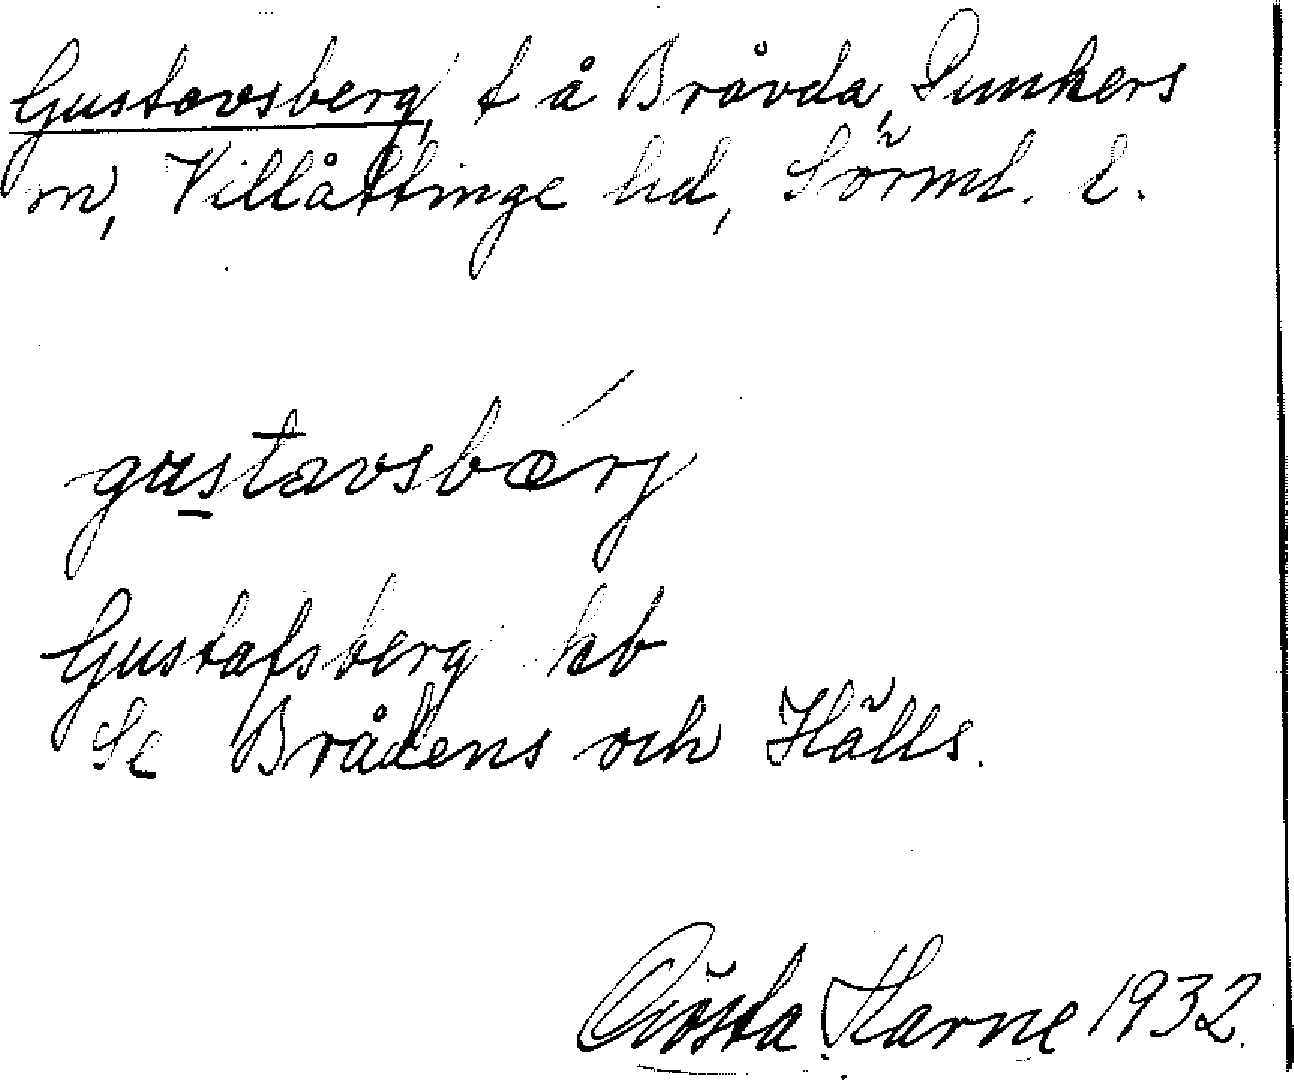 Gustavsberg, t å Bråvda, Dunkers
sn, Villåttinge hd, Sörml. l.
gustavsbærj
Gustafsberg kb
Se Brådens och Hälls.
Gösta Harne 1932.